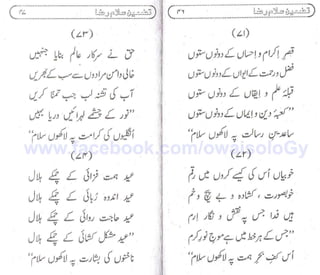 تضمین سلام رضا
۴۶
(۷۱)
قصرِ اکرام و احساں کے دونوں ستوں
فضل و رحمت کے ایواں کے دونوں ستوں
قبلۂ علم و ایقاں کے دونوں ستوں
”کعبۂ دین و ایماں کے دونوں ستوں
ساعدینِ رسالت پہ لاکھوں سلام“
(۷۲)
خوبیاں اُس کی کیسے کروں میں رقم
خوبصورت ، کشادہ و بے پیچ و خم
ہیں فدا جس پہ نقش و نگارِ ارم
”جس کے ہر خط میں ہے موجِ نورِ کرم
اُس کفِ بحرِ ہمت پہ لاکھوں سلام“
تضمین سلام رضا
۴۷
(۷۳)
حق نے سرکارِ عالم بنایا جنہیں
خالی دامن مرادوں سے سب کے بھریں
آپ کی تشنہ لب جب تمنا کریں
”نور کے چشمے لہرائیں دریا بہیں
انگلیوں کی کرامت پہ لاکھوں سلام“
(۷۴)
عیدِ ہمت فزائی کے چمکے ہلال
عیدِ اندوہ ربائی کے چمکے ہلال
عیدِ حاجت روائی کے چمکے ہلال
”عیدِ مشکل کشائی کے چمکے ہلال
ناخنوں کی بشارت پہ لاکھوں سلام“
www.facebook.com/owaisoloGy